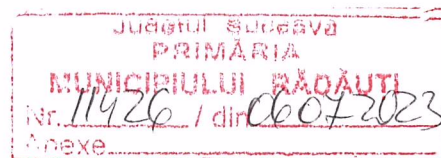 Județul Suceava
PRIMĂRIA
MUNICIPIULUI RĂDĂUȚI
Nr. 11426 / din 06072023
Anexe